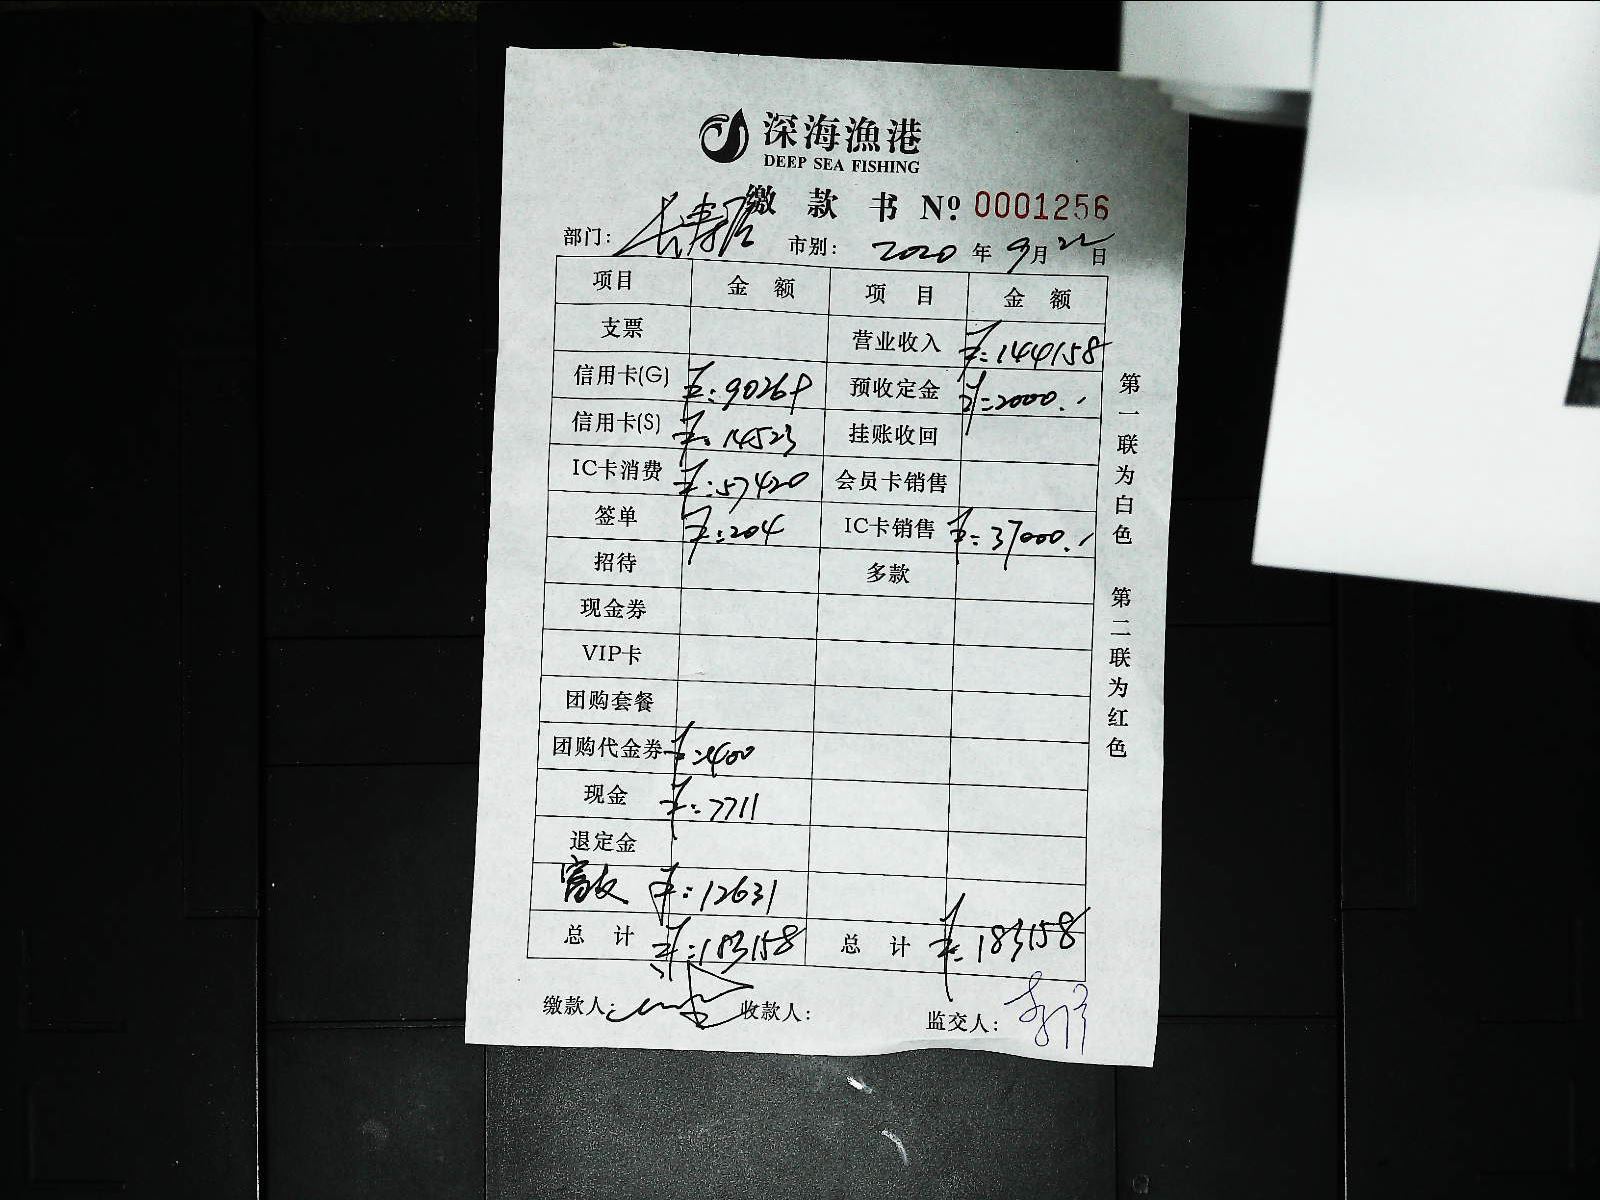 深海漁港
DEEP SEA FISHING
缴 款 书 Nº 0001256
部门: 长寿 市别: 2020 年 9 月 22 日
项目 金 额 项 目 金 额
支票 营业收入 ¥:144158
信用卡(G) ¥:90269 预收定金 ¥:2000.
信用卡(S) ¥:14523 挂账收回
IC卡消费 ¥:57420 会员卡销售
签单 ¥:204 IC卡销售 ¥:37000.
招待 多款
现金券
VIP卡
团购套餐
团购代金券 ¥:400
现金 ¥:7711
退定金
富友 ¥:12631
总 计 ¥:183158 总 计 ¥:183158
缴款人: 收款人: 监交人:
第一联为白色 第二联为红色